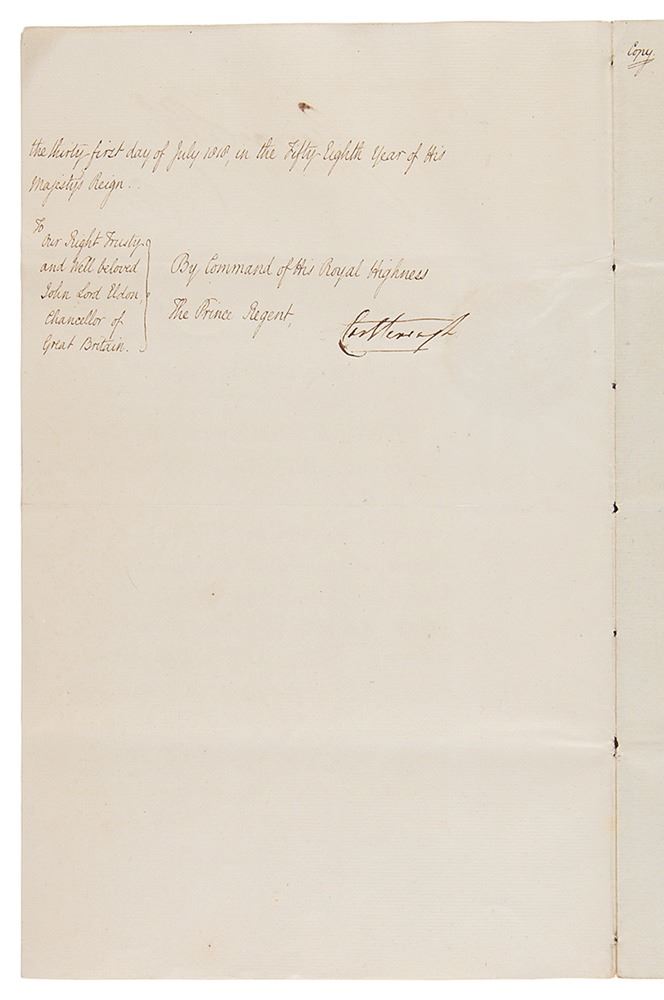 Copy.
the thirty-first day of July 1818, in the Fifty-Eighth Year of His
Majesty's Reign..
To
Our Right Trusty
and Well beloved
John Lord Eldon,
Chancellor of
Great Britain.
By Command of His Royal Highness
The Prince Regent,
Castlereagh